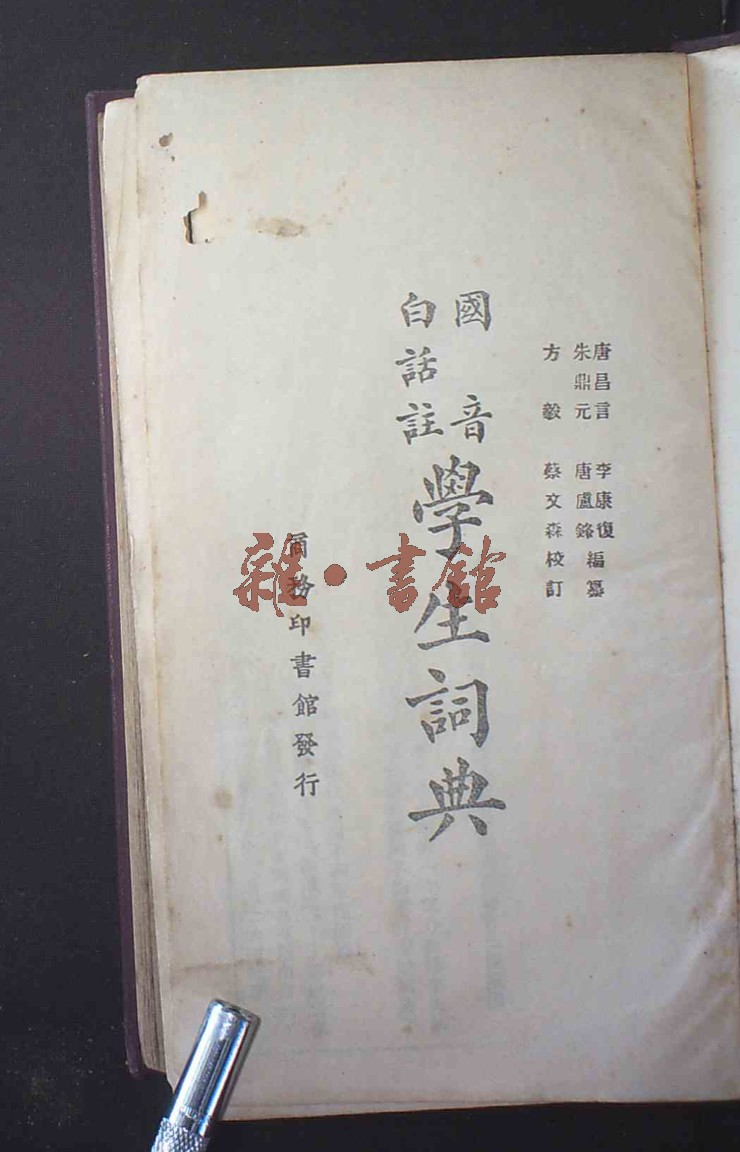 唐昌言　李康復編纂
朱鼎元　唐盧鋒
方毅　蔡文森校訂
國音
白話註
學生詞典
商務印書館發行
雜·書館